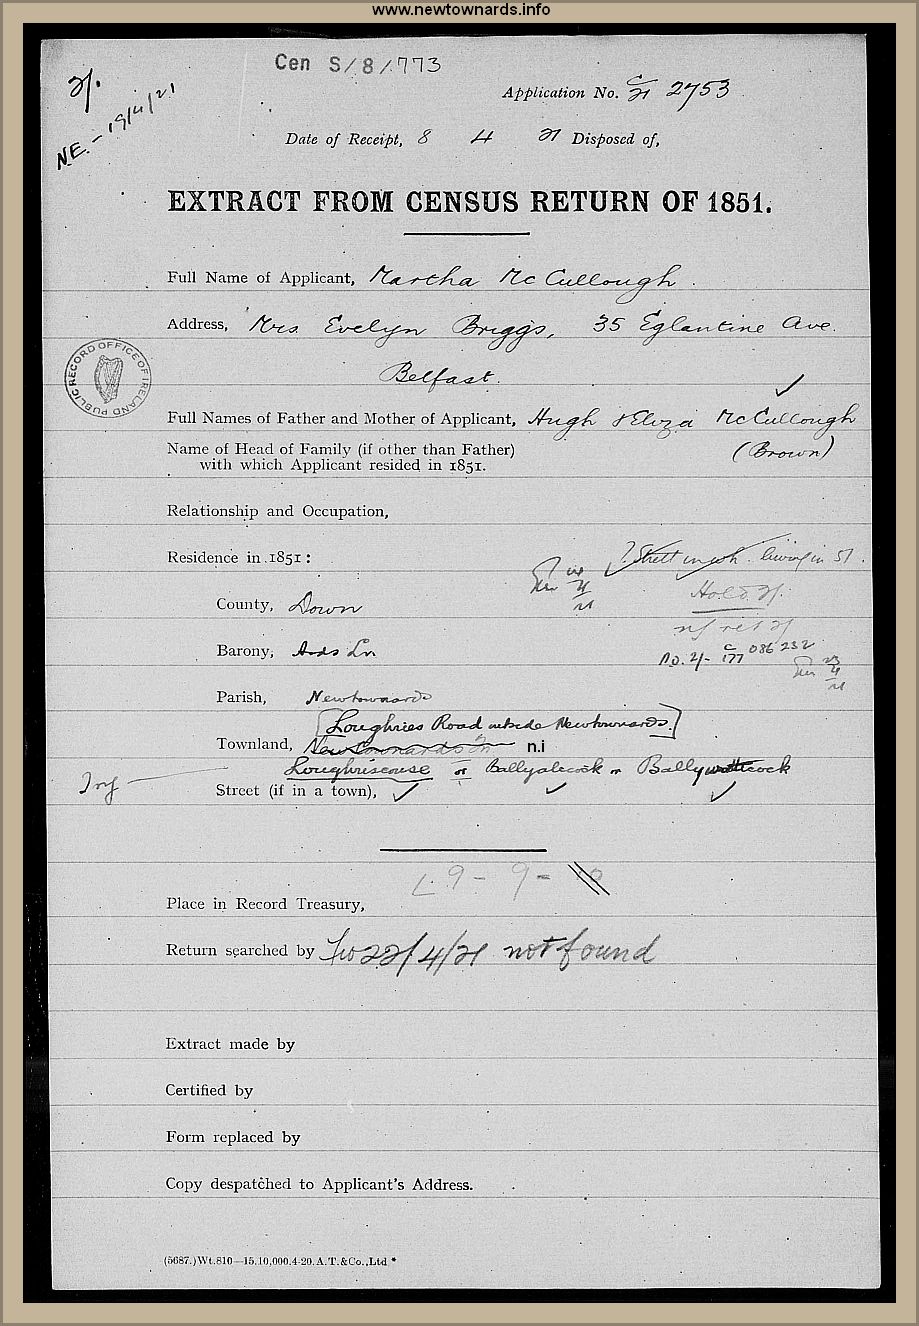 www.newtownards.info
Cen S/8/773
Application No. C/21 2753
NE. - 19/4/21
Date of Receipt, 8 4 21 Disposed of,
EXTRACT FROM CENSUS RETURN OF 1851.
Full Name of Applicant, Martha McCullough.
Address, Mrs Evelyn Briggs, 35 Eglantine Ave.
Belfast.
PUBLIC RECORD OFFICE OF IRELAND
Full Names of Father and Mother of Applicant, Hugh & Eliza McCullough
Name of Head of Family (if other than Father) (Brown)
with which Applicant resided in 1851.
Relationship and Occupation,
Residence in 1851: ? Street in wh. living in 51.
County, Down
Barony, Ards Lr
Parish, Newtownards
[Loughries Road outside Newtownards.]
Townland, Newtownards n.i
Loughriscouse or Ballyalicock or Ballywatticock
Street (if in a town),
9 - 9 -
Place in Record Treasury,
Return searched by 22/4/21 not found
Extract made by
Certified by
Form replaced by
Copy despatched to Applicant's Address.
(5687.)Wt.810—15.10,000.4-20.A.T.&Co.,Ltd *